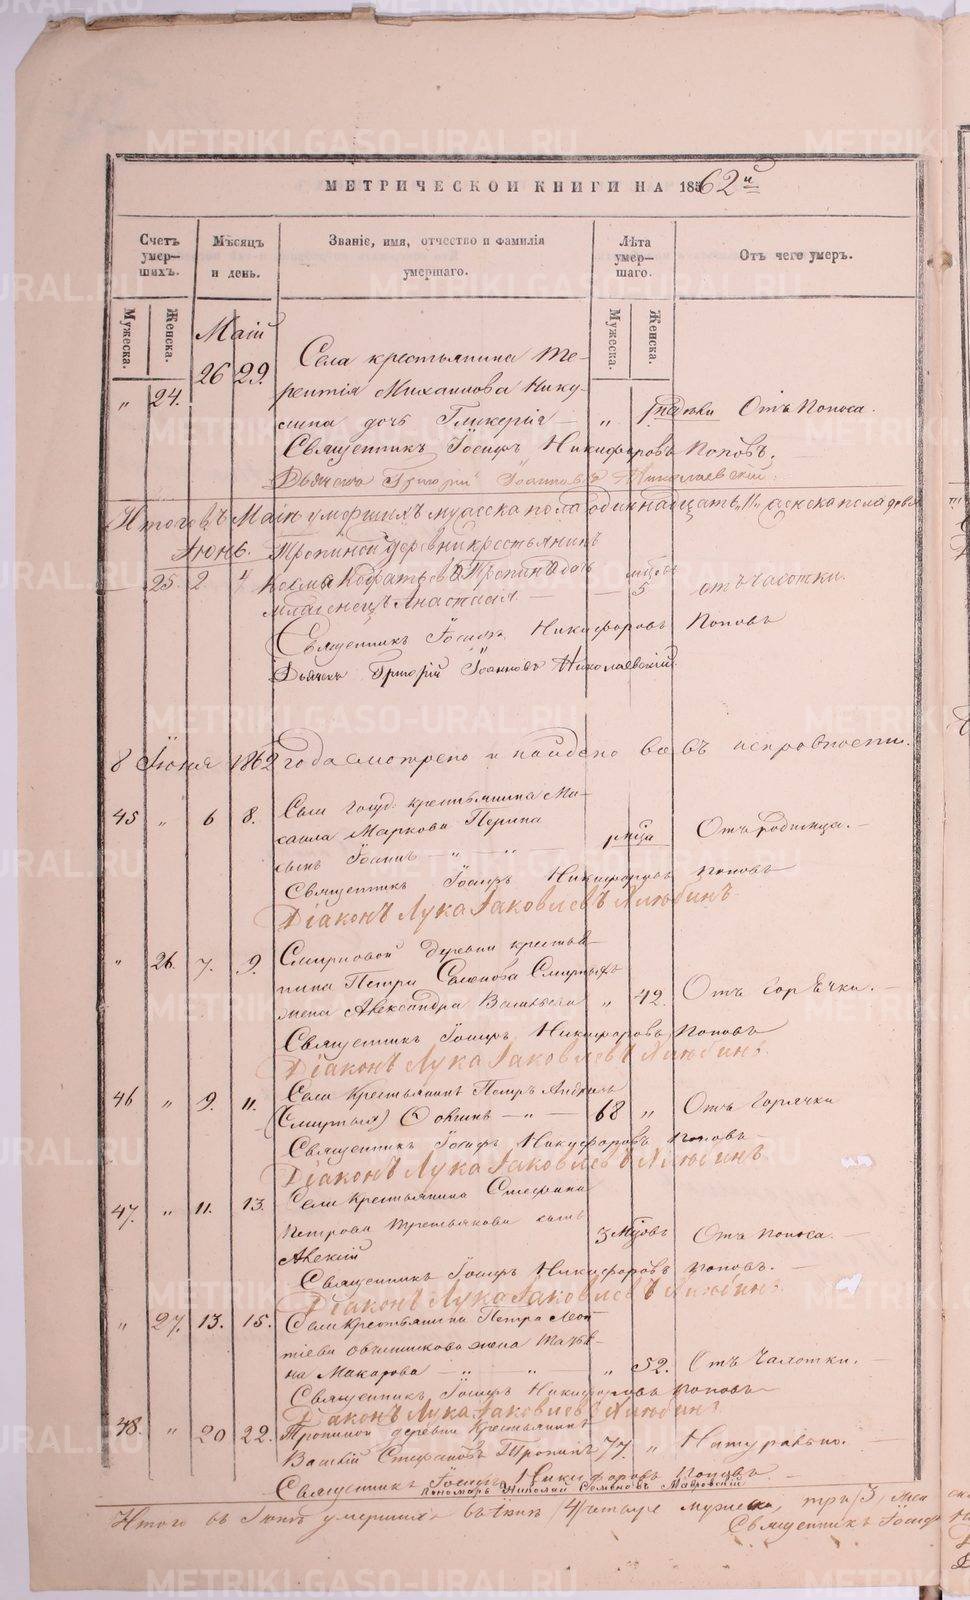 МЕТРИЧЕСКОЙ КНИГИ НА 1862й
Счетъ умер-шихъ.
Мѣсяцъ и день.
Званіе, имя, отчество и фамилія умершаго.
Лѣта умер-шаго.
Отъ чего умеръ.
Мужеска.
Женска.
Мужеска.
Женска.
Маій
„ 24. 26 29. Села крестьянина Те-
рентія Михаилова Нику-
лина дочь Гликерія — „ Отъ Поноса.
Священникъ Іосифъ Никифоровъ Поповъ.
Дьячекъ Григорій Іоанновъ Николаевскій.
Итого въ Маіи умершихъ мужеска пола одиннадцать „11„ женска пола
Іюнь. Тропиной деревни крестьянина
25. 2 4 Космы Кодратьева Тропина дочь
младенецъ Анастасія. — 5 отъ Чахотки.
Священникъ Іосифъ Никифоровъ Поповъ
Дьячекъ Григорій Іоанновъ Николаевскій
8 Іюня 1862 года смотрено и найдено въ исправности.
45 „ 6 8. Села Госуд: крестьянина Ми-
хаила Маркова Перина
сынъ Іоаннъ „ — „ — Отъ родимца. —
Священникъ Іосифъ Никифоровъ Поповъ
Діаконъ Лука Іаковлевъ Хлюбинъ
„ 26. 7. 9. Смирновой деревни крестья-
нина Петра Семенова Смирныхъ
жена Александра Васильева „ 42. Отъ Горячки. —
Священникъ Іосифъ Никифоровъ Поповъ
Діаконъ Лука Іаковлевъ Хлюбинъ
46 „ 9. 11. Села Крестьянинъ Петръ
— „ — 68 „ Отъ Горячки
Священникъ Іосифъ Никифоровъ Поповъ
Діаконъ Лука Іаковлевъ Хлюбинъ
47. „ 11. 13. Села Крестьянина Стефана
Петрова Третьякова сынъ
Алексій 3 мѣсцовъ Отъ поноса. —
Священникъ Іосифъ Никифоровъ Поповъ. —
Діаконъ Лука Іаковлевъ Хлюбинъ
„ 27. 13. 15. Села Крестьянина Петра Леон-
тіева Овчинникова жена Татья-
на Макарова — „ „ „ 52. Отъ Чахотки. —
Священникъ Іосифъ Никифоровъ Поповъ
Діаконъ Лука Іаковлевъ Хлюбинъ
48. „ 20 22. Тропиной деревни Крестьянинъ
Василій Стефановъ Тропинъ 77. „ Натурально. —
Священникъ Іосифъ Никифоровъ Поповъ —
Пономарь Николай Семеновъ Мавровскій
Итого въ Іюнѣ умершихъ /4/ четыре мужеска, три /3/ жен
Священникъ Іосиф
METRIKI.GASO-URAL.RU